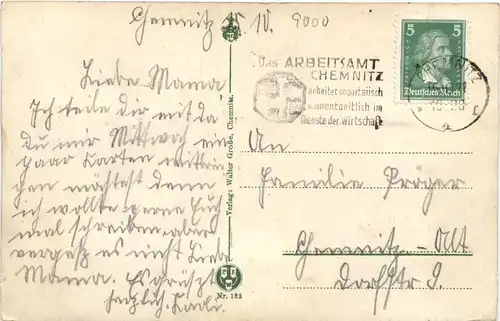 Chemnitz 10. 9000
Liebe Mama!
Ich teile dir mit da
du mir Mittwoch ein
paar Karten mitbrin
gen möchtest denn
ich wollte gerne Euch
mal schreiben, aber
vergeß es nicht Liebe
Mama. Es grüßt
herzlich
Verlag: Walter Große, Chemnitz.
Nr. 132
Das ARBEITSAMT
CHEMNITZ
arbeitet unparteiisch
u. unentgeltlich im
Dienste der Wirtschaft
5 5
Deutsches Reich
CHEMNITZ
4
An
Familie Präger
Chemnitz-Alt
Dorfstr 9.